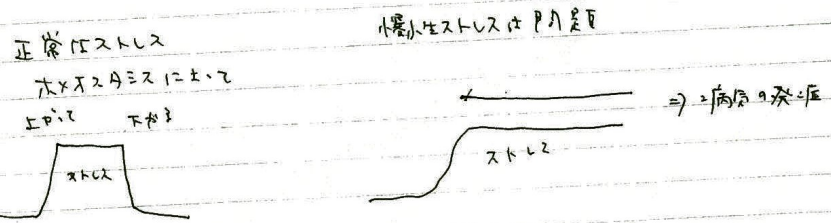 正常なストレス
ホメオスタシスによって
上がって 下がる
ストレス
慢性ストレスは問題
ストレス
⇒ 病気の発症